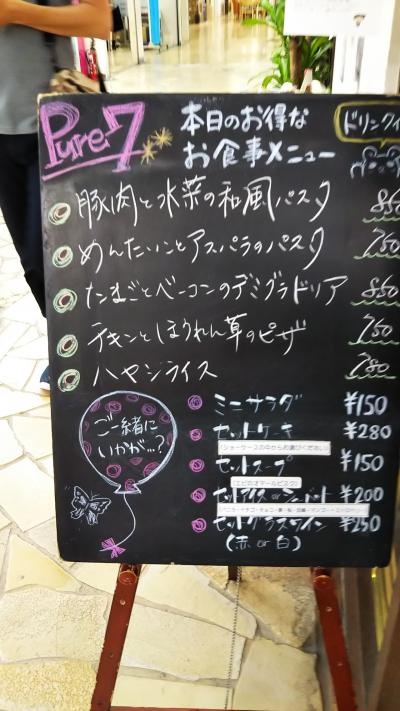 Pure 7
本日のお得な
お食事メニュー
ドリンク
豚肉と水菜の和風パスタ 850
めんたいことアスパラのパスタ 750
たまごとベーコンのデミグラドリア 850
チキンとほうれん草のピザ 750
ハヤシライス 780
ご一緒に
いかが…?
ミニサラダ ¥150
セットケーキ ¥280
(ショーケースの中からお選びください)
セットスープ ¥150
(エビのオマールビスク)
セットアイス or シャーベット ¥200
セットグラスワイン ¥250
(赤 or 白)